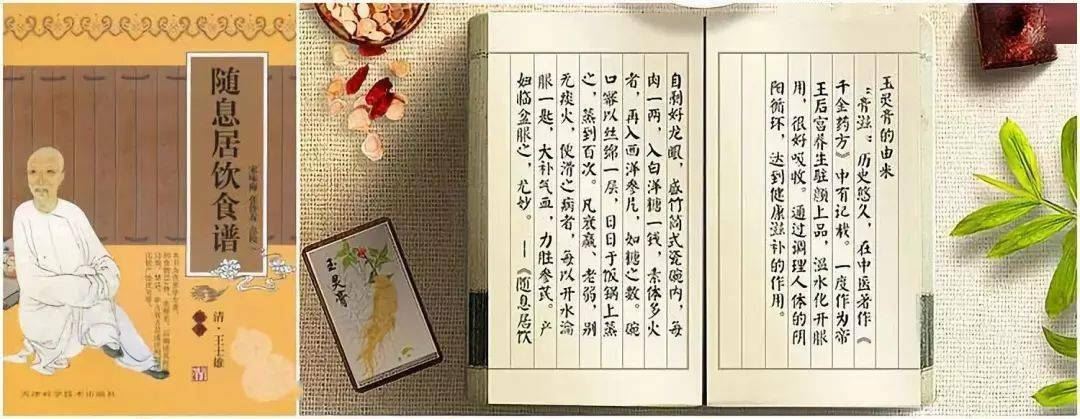 随息居饮食谱
清·王士雄
天津科学技术出版社
玉灵膏
玉灵膏的由来
“膏滋”历史悠久，在中医著作《
千金药方》中有记载。一度作为帝
王后宫养生驻颜上品，温水化开服
用，很好吸收。通过调理人体的阴
阳循环，达到健康滋补的作用。
自剥好龙眼，盛竹筒式瓷碗内，每
肉一两，入白洋糖一钱，素体多火
者，再入西洋参片，如糖之数。碗
口幂以丝绵一层，日日于饭锅上蒸
之，蒸到百次。凡衰羸、老弱，别
无痰火，便滑之病者，每以开水瀹
服一匙，大补气血，力胜参芪。产
妇临盆服之，尤妙。 —《随息居饮